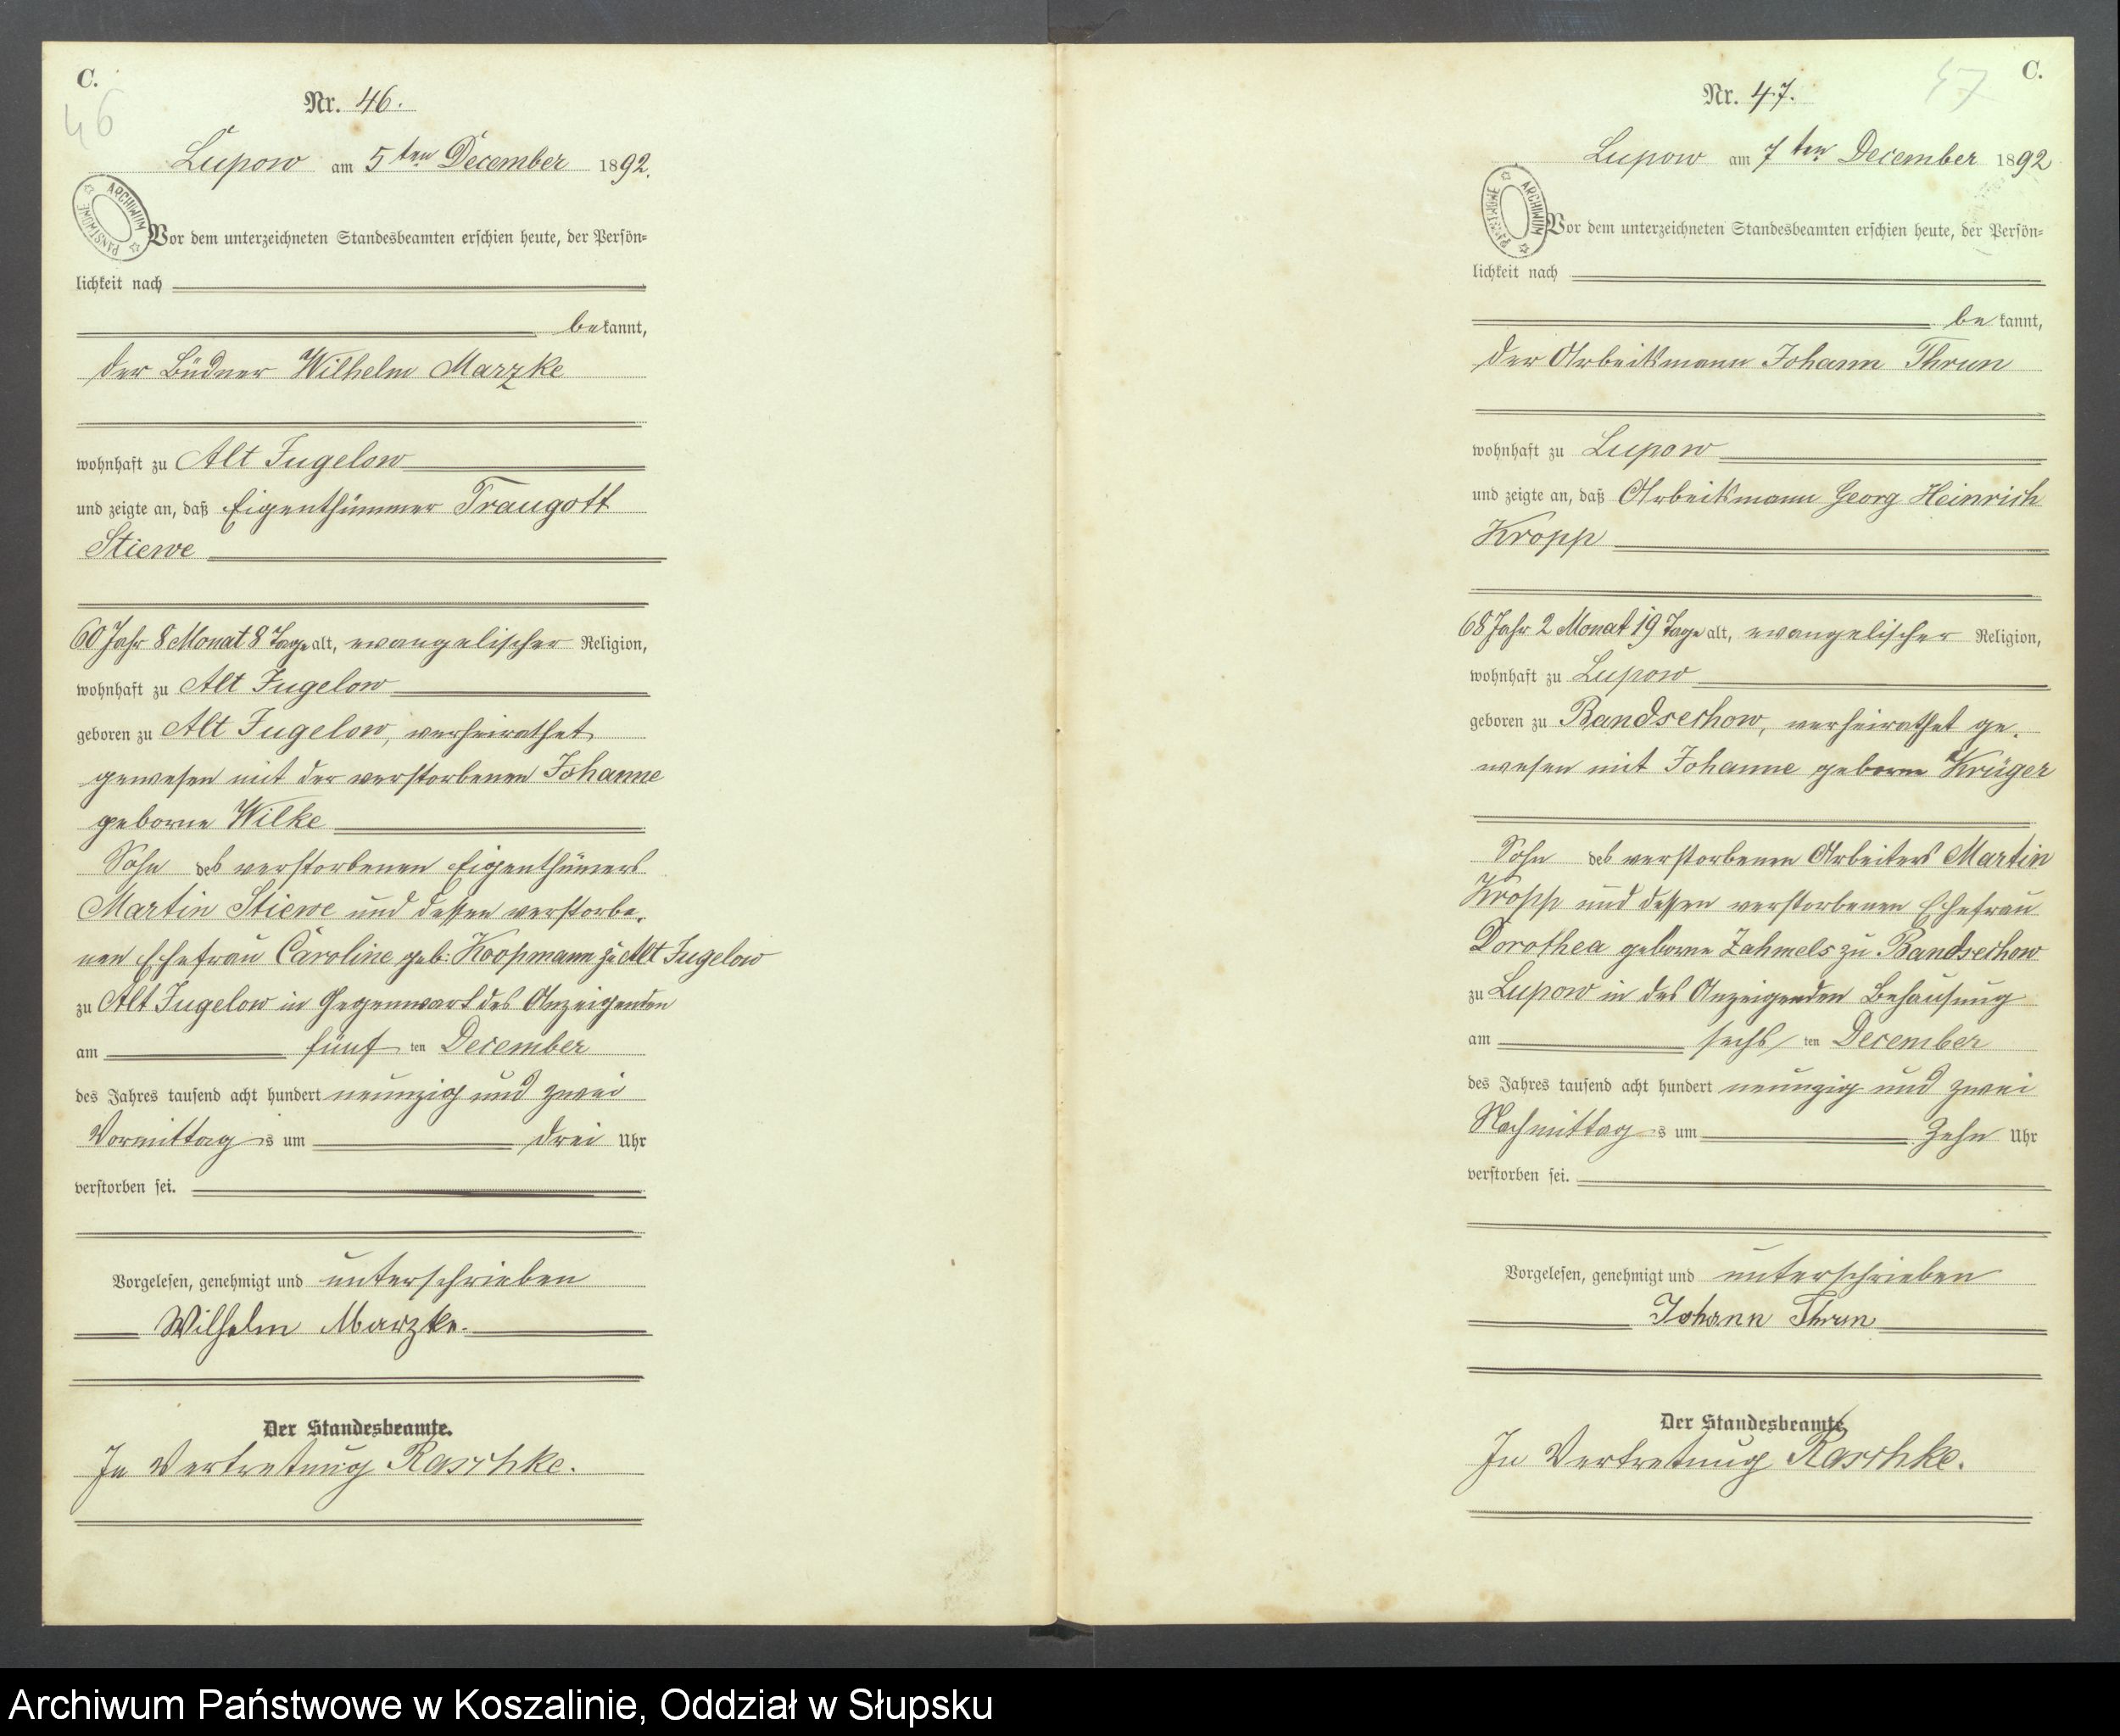 C.
46
Nr. 46.
Lupow am 5ten December 1892.
ARCHIWUM PAŃSTWOWE
Vor dem unterzeichneten Standesbeamten erschien heute, der Persön=
lichkeit nach
bekannt,
der Büdner Wilhelm Marzke
wohnhaft zu Alt Jugelow
und zeigte an, daß Eigenthümmer Traugott
Stiewe
60 Jahr 8 Monat 8 Tage alt, evangelischer Religion,
wohnhaft zu Alt Jugelow
geboren zu Alt Jugelow, verheirathet
gewesen mit der verstorbenen Johanne
geborne Wilke
Sohn des verstorbenen Eigenthümers
Martin Stiewe und dessen verstorbe-
nen Ehefrau Caroline geb: Koopmann zu Alt Jugelow
zu Alt Jugelow in Gegenwart des Anzeigenden
am fünf ten December
des Jahres tausend acht hundert neunzig und zwei
Vormittag s um drei Uhr
verstorben sei.
Vorgelesen, genehmigt und unterschrieben
Wilhelm Marzke.
Der Standesbeamte.
In Vertretung Raschke.
C.
47
Nr. 47.
Lupow am 7ten December 1892
ARCHIWUM PAŃSTWOWE
Vor dem unterzeichneten Standesbeamten erschien heute, der Persön=
lichkeit nach
be kannt,
der Arbeitsmann Johann Thrun
wohnhaft zu Lupow
und zeigte an, daß Arbeitsmann Georg Heinrich
Kropp
68 Jahr 2 Monat 19 Tage alt, evangelischer Religion,
wohnhaft zu Lupow
geboren zu Bandsechow, verheirathet ge-
wesen mit Johanne geborne Krüger
Sohn des verstorbenen Arbeiters Martin
Kropp und dessen verstorbenen Ehefrau
Dorothea geborne Zahmels zu Bandsechow
zu Lupow in des Anzeigenden Behausung
am sechs ten December
des Jahres tausend acht hundert neunzig und zwei
Nachmittag s um Zehn Uhr
verstorben sei.
Vorgelesen, genehmigt und unterschrieben
Johann Thrun
Der Standesbeamte.
In Vertretung Raschke.
Archiwum Państwowe w Koszalinie, Oddział w Słupsku